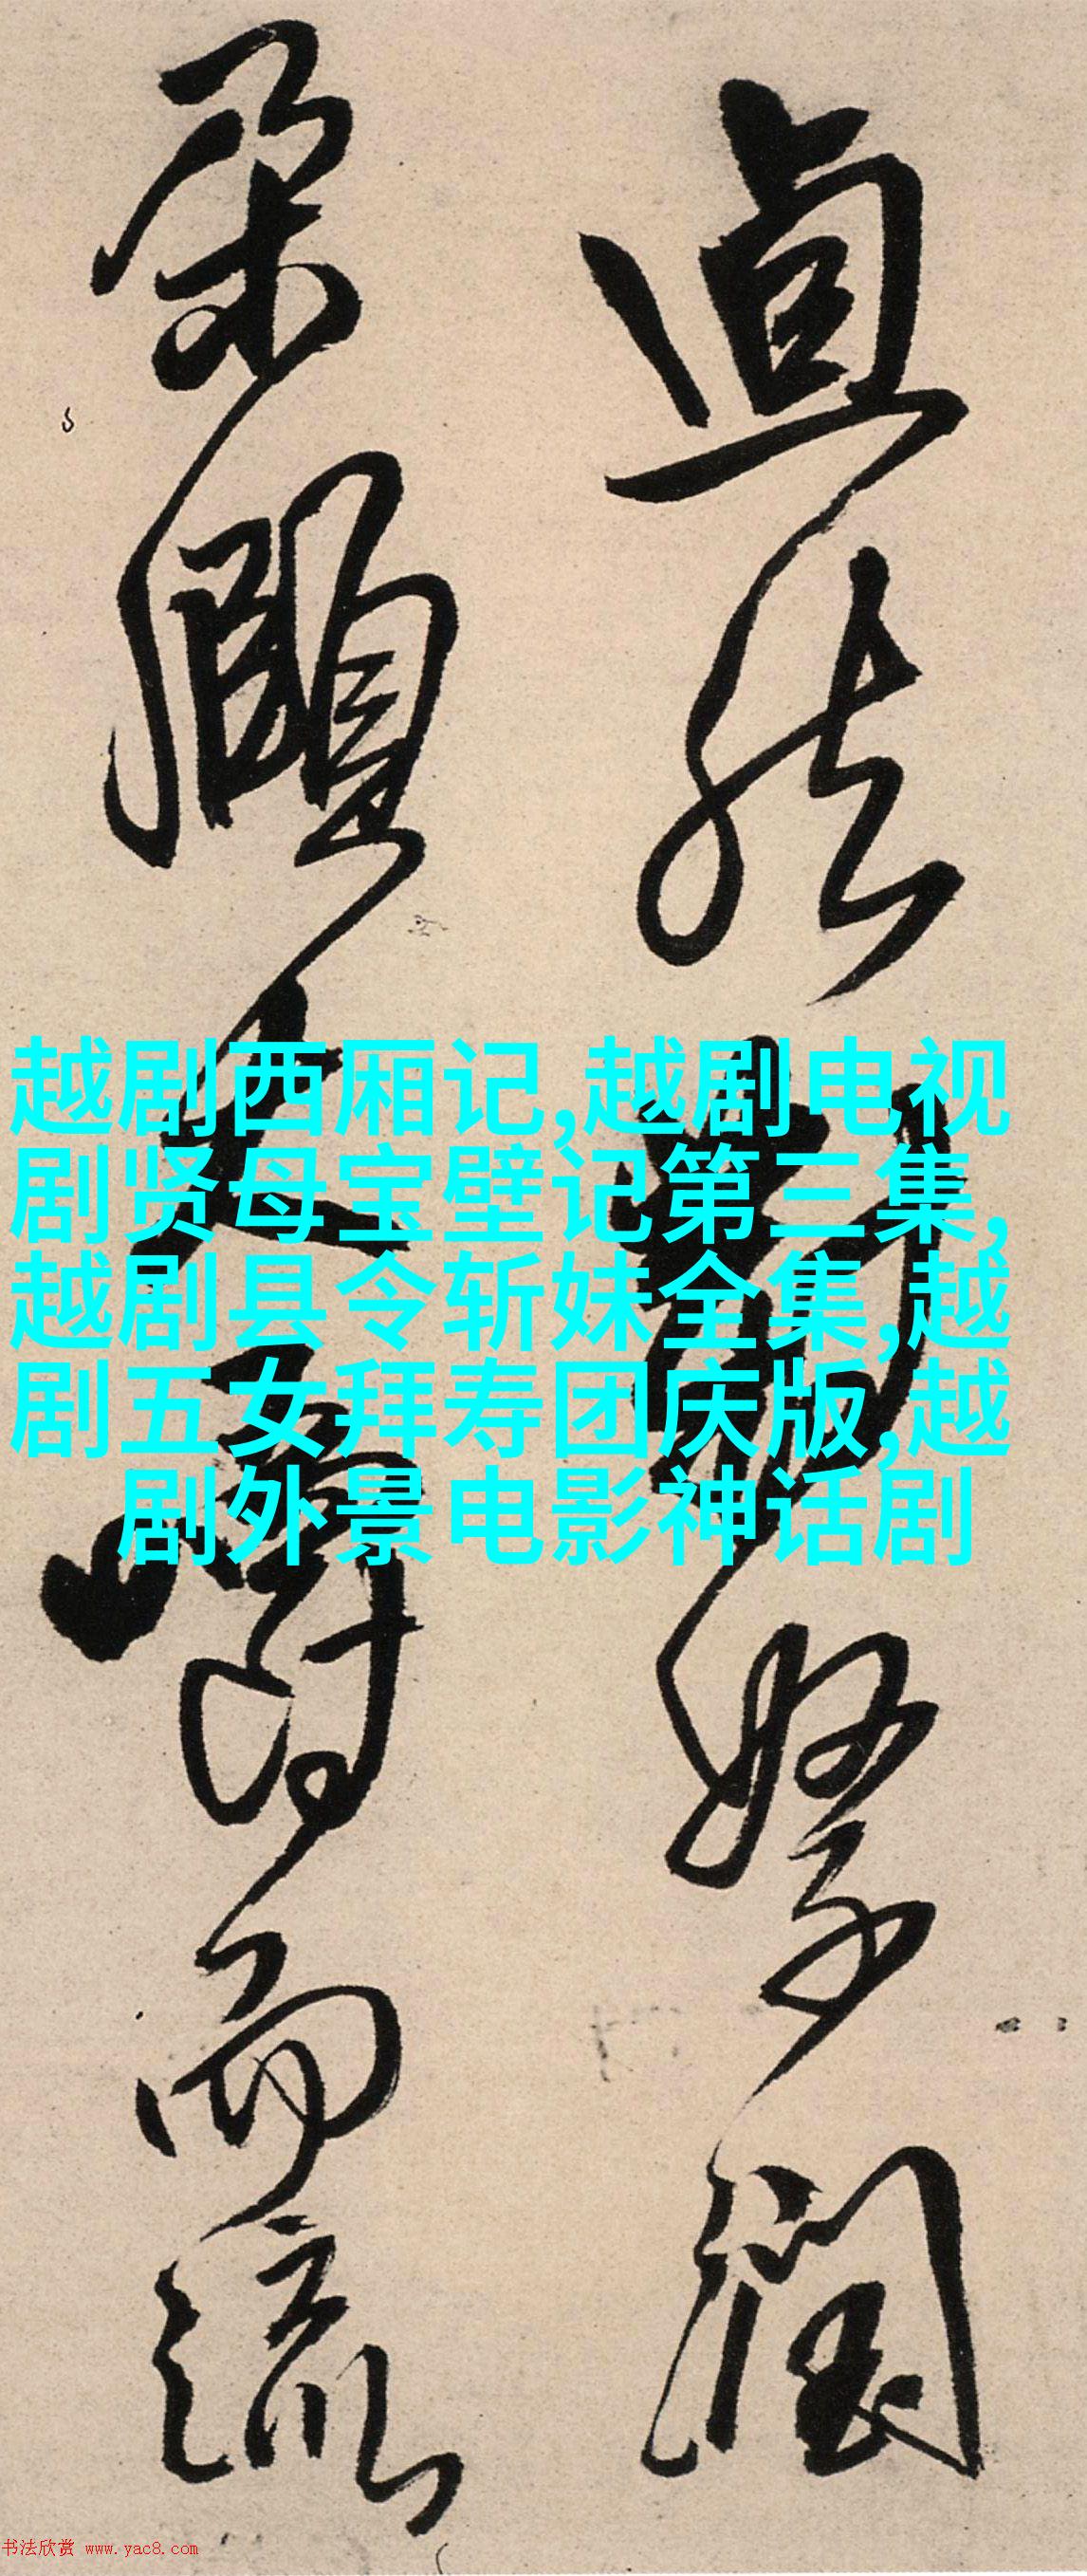 然 潤
朵頤大嚼而流
越剧西厢记,越剧电视
剧贤母宝壁记第三集,
越剧县令斩妹全集,越
剧五女拜寿团庆版,越
剧外景电影神话剧
书法欣赏 www.yac8.com